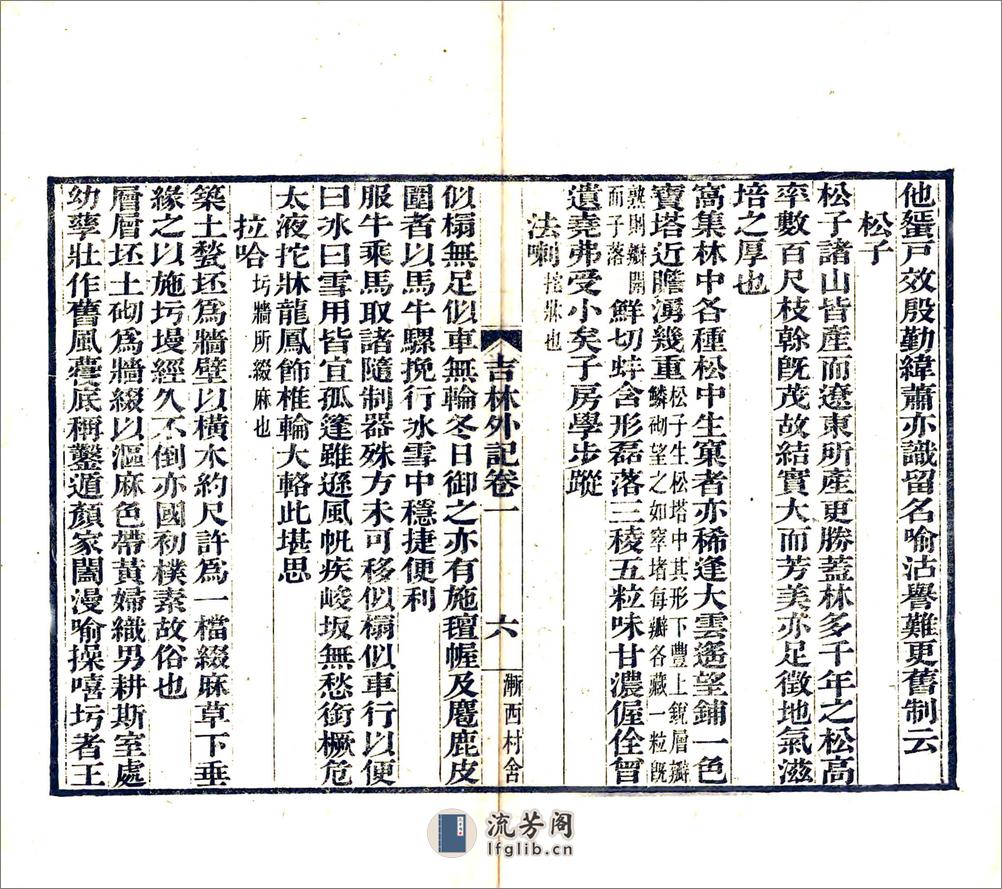 他蜑戸效殷勤緯蕭亦識留名喻沽譽難更舊制云
松子
松子諸山皆產而遼東所產更勝蓋林多千年之松高
率數百尺枝幹旣茂故結實大而芳美亦足徵地氣滋
培之厚也
窩集林中各種松中生窠者亦稀逢大雲遙望鋪一色
寶塔近瞻湧幾重松子生松塔中其形下豐上銳層瓣鱗砌望之如窣堵每瓣各藏一粒旣
熟則瓣開而子落鮮切蚌含形磊落三稜五粒味甘濃偓佺曾
遺堯弗受小矣子房學步蹤
法喇拕牀也
吉林外記卷一
六
漸西村舍
似榻無足似車無輪冬日御之亦有施氊幄及麂鹿皮
圍者以馬牛騾挽行冰雪中穩捷便利
服牛乘馬取諸隨制器殊方未可移似榻似車行以便
曰冰曰雪用皆宜孤篷雖遜風帆疾峻坂無愁銜橛危
太液拕牀龍鳳飾椎輪大輅此堪思
拉哈圬牆所綴麻也
築土墼坯爲牆壁以橫木約尺許爲一檔綴麻草下垂
緣之以施圬墁經久不倒亦國初樸素故俗也
層層坯土砌爲牆綴以漚麻色帶黃婦織男耕斯室處
幼孳壯作舊風蘘底稱鑿遁顏家闔漫喻操嘻圬者王
流芳阁
lfglib.cn